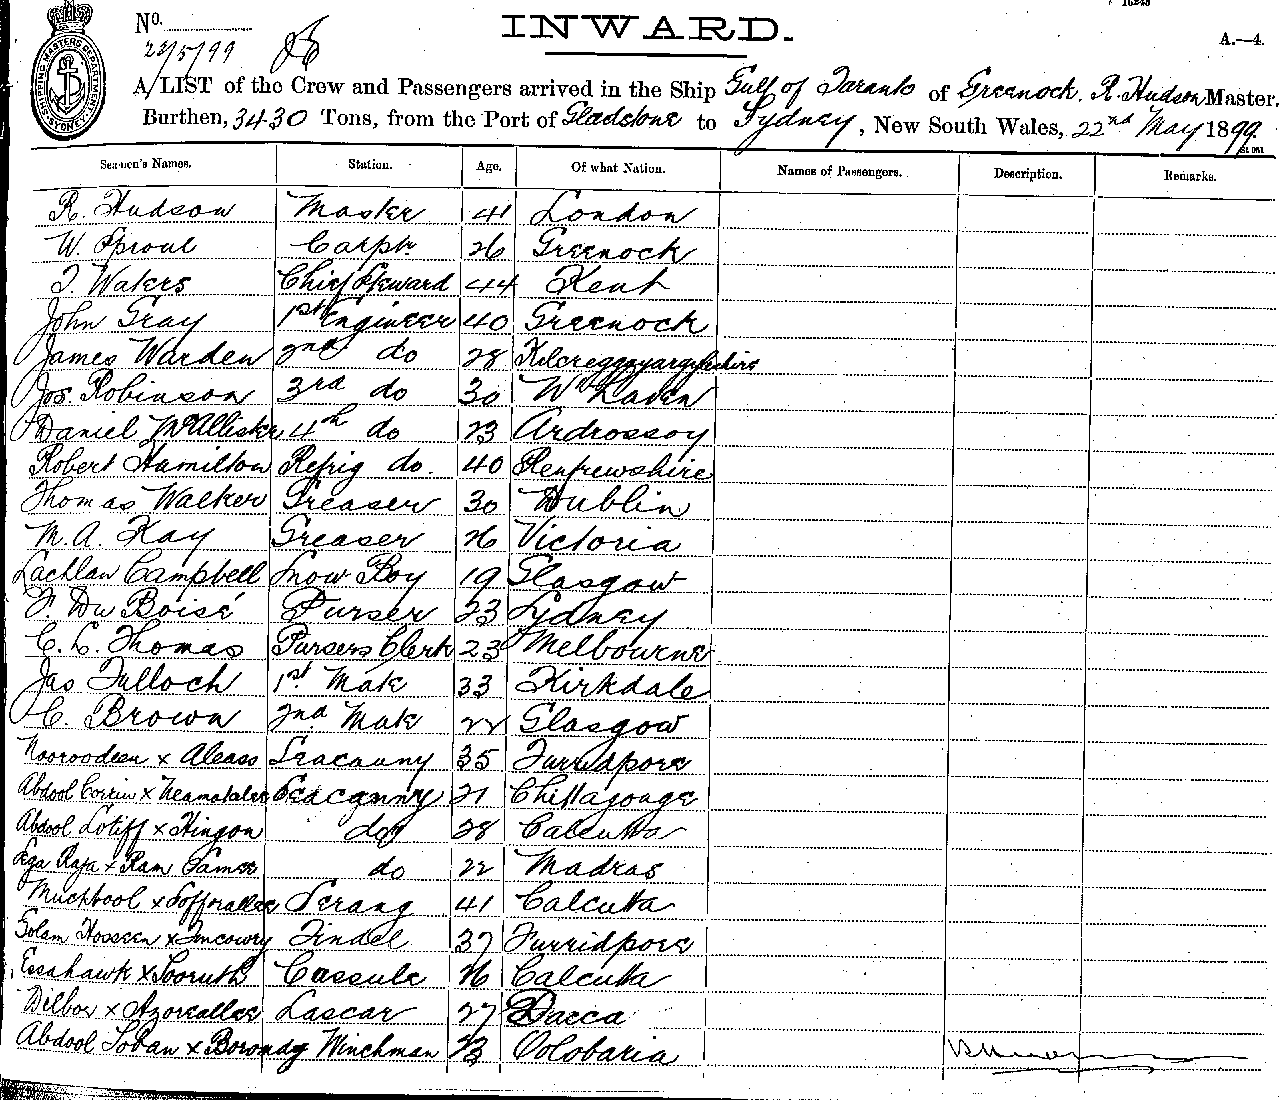 No.
INWARD.
A.—4.
22/5/99
A/LIST of the Crew and Passengers arrived in the Ship Gulf of Taranto of Greenock. R. Hudson Master,
Burthen, 3430 Tons, from the Port of Gladstone to Sydney, New South Wales, 22nd May 1899
SHIPPING MASTERS DEPARTMENT SYDNEY
Seamen's Names. Station. Age. Of what Nation. Names of Passengers. Description. Remarks.
R. Hudson Master 41 London
W. Sproul Carptr 26 Greenock
T. Waters Chief Steward 44 Kent
John Gray 1st Engineer 40 Greenock
James Warden 2nd do 28
Jos. Robinson 3rd do 30 Wthaven
Daniel McAllister 4th do 23 Ardrossoy
Robert Hamilton Refrig do. 40 Renfrewshire
Thomas Walker Greaser 30 Dublin
M. A. Kay Greaser 26 Victoria
Lachlan Campbell Snow Boy 19 Glasgow
F. Du Boisé Purser 23 Sydney
C. L. Thomas Pursers Clerk 23 Melbourne
Jas Tulloch 1st Mate 33 Kirkdale
C. Brown 2nd Mate 22 Glasgow
Nooroodeen x Aleass Seacunny 35 Furridpore
Abdool Corrim x Seacunny 21 Chittagonge
Abdool Lotiff x Hingon do 28 Calcutta
Raja x Ram Samee do 22 Madras
Muchbool x Sofforallee Serang 41 Calcutta
Golam Hosseen x Tincowry Tindel 37 Furridpore
Essahawk x Sooruth Cassule 26 Calcutta
Dilbor x Azorealler Lascar 27 Dacca
Abdool Soban x Boromdy Winchman 23 Oolobaria